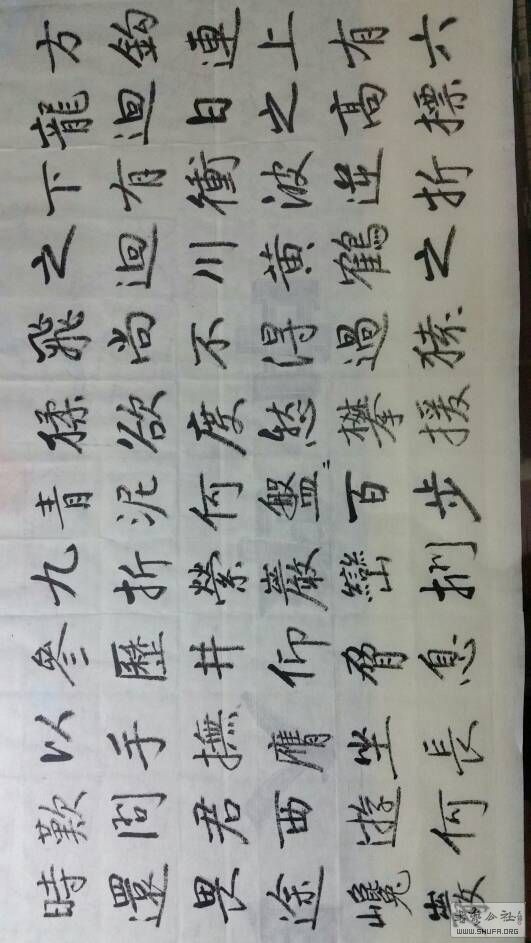 方鉤連上有六
龍迴日之高標
下有衝波逆折
之迴川黃鶴之
飛尚不得過猿
猱欲度愁攀援
青泥何盤〻百步
九折縈巖巒捫
參歷井仰脅息
以手撫膺坐長
歎問君西遊何
時還畏途巉巖
WWW.SHUFA.ORG